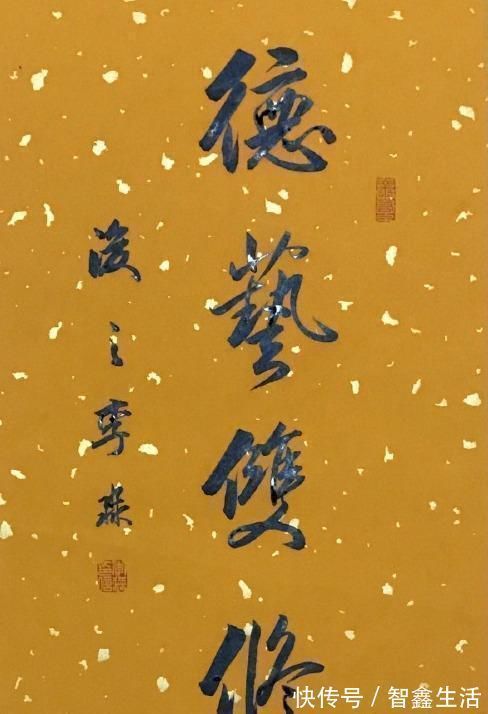 德藝雙修
之李森
快传号/智鑫生活